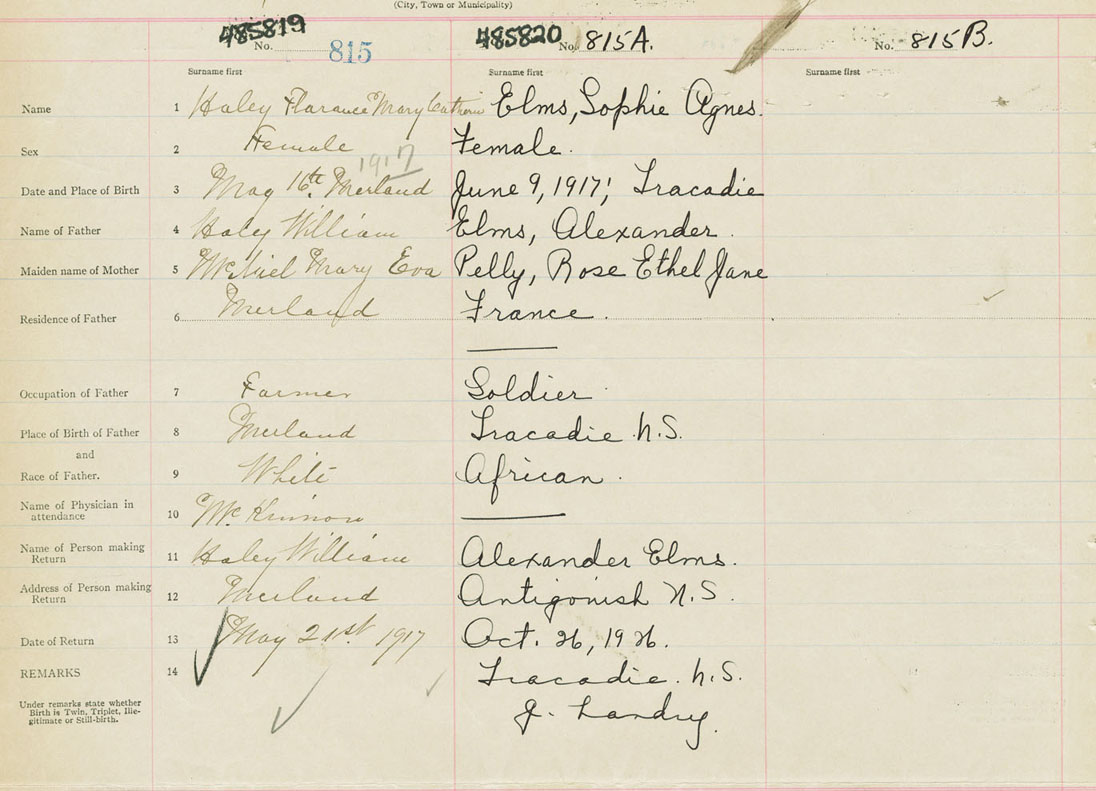 (City, Town or Municipality)
485819 485820
No. 815 No. 815A. No. 815B.
Surname first Surname first Surname first
Name 1 Haley Florance Mary Elms, Sophie Agnes.
Sex 2 Female Female.
1917
Date and Place of Birth 3 May 16th Merland June 9, 1917; Tracadie
Name of Father 4 Haley William Elms, Alexander.
Maiden name of Mother 5 Mary Eva Pelly, Rose Ethel Jane
Residence of Father 6 Merland France.
Occupation of Father 7 Farmer Soldier
Place of Birth of Father 8 Merland Tracadie N.S.
and
Race of Father. 9 White African.
Name of Physician in
attendance 10 McKinnon
Name of Person making
Return 11 Haley William Alexander Elms.
Address of Person making
Return 12 Merland Antigonish N.S.
Date of Return 13 May 21st 1917 Oct. 26, 1926.
REMARKS 14 Tracadie. N.S.
Under remarks state whether
Birth is Twin, Triplet, Ille-
gitimate or Still-birth.
J. Landry.